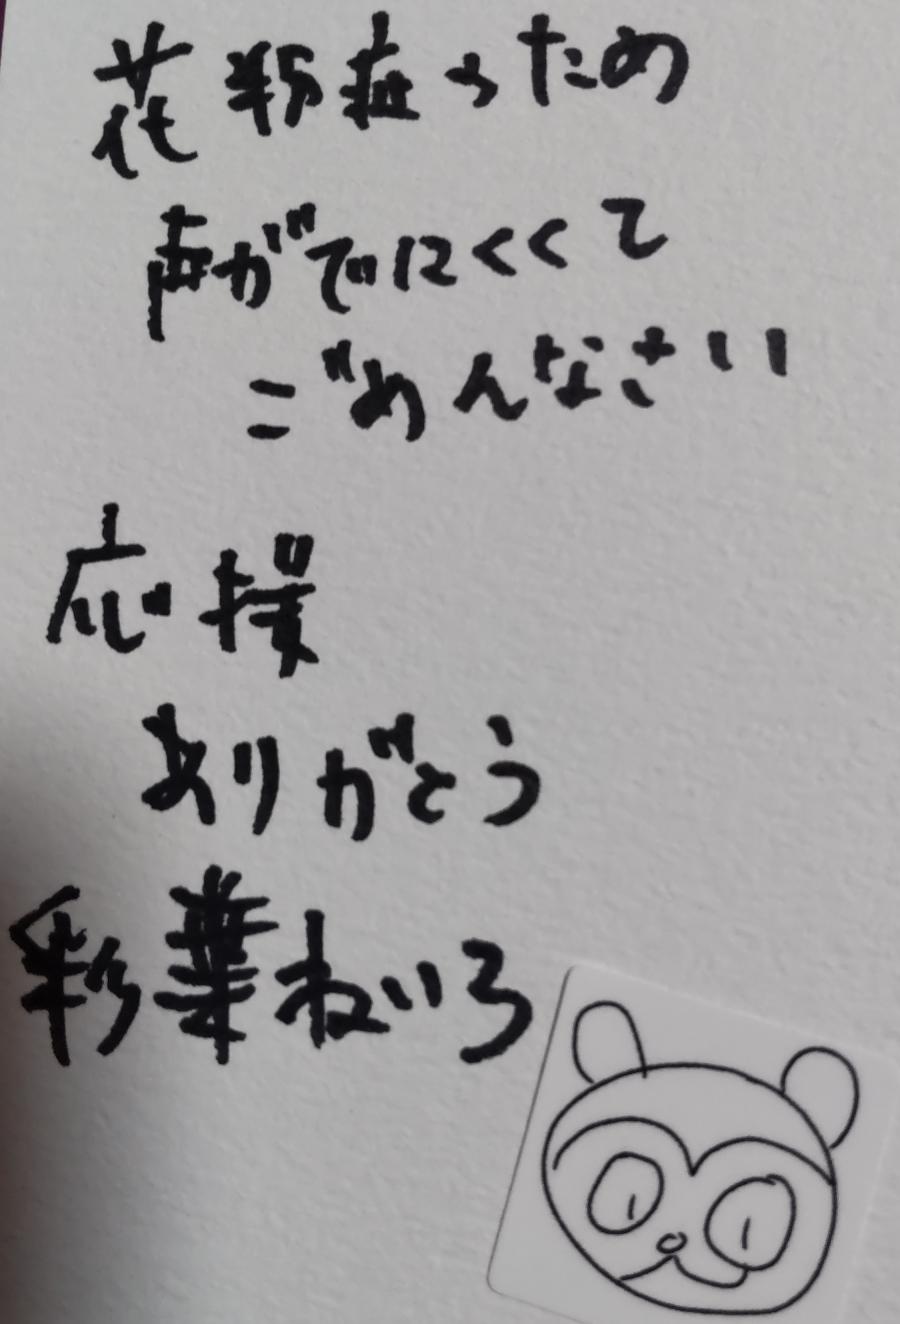 花粉症のため
声がでにくくて
ごめんなさい
応援
ありがとう
彩葉ねいろ